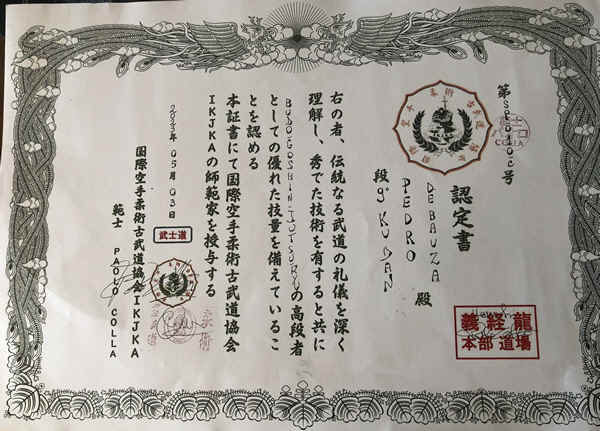 認定書
DEBAUZA
PEDRO 殿
段 9° KU DAN
右の者、伝統なる武道の礼儀を深く
理解し、秀でた技術を有すると共に
の高段者
としての優れた技量を備えているこ
とを認める
本証書にて国際空手柔術古武道協会
IKJKAの師範家を授与する
2023年05月03日
国際空手柔術古武道協会IKJKA
範士 PAOLO COLLA
武士道
義経龍
本部道場